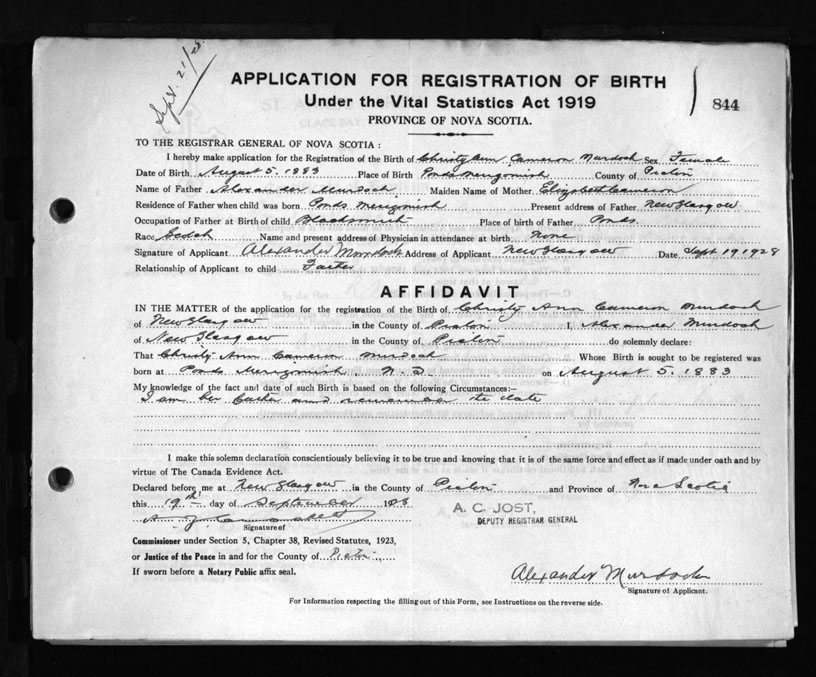 Sept. 21/28
APPLICATION FOR REGISTRATION OF BIRTH
Under the Vital Statistics Act 1919
844
PROVINCE OF NOVA SCOTIA.
TO THE REGISTRAR GENERAL OF NOVA SCOTIA :
I hereby make application for the Registration of the Birth of Christy Ann Cameron Murdoch Sex Female
Date of Birth August 5. 1883 Place of Birth Ponds Merigomish County of Pictou
Name of Father Alexander Murdoch Maiden Name of Mother Elizabeth Cameron
Residence of Father when child was born Ponds Merigomish Present address of Father New Glasgow
Occupation of Father at Birth of child Blacksmith Place of birth of Father Ponds
Race Scotch Name and present address of Physician in attendance at birth None
Signature of Applicant Alexander Murdoch Address of Applicant New Glasgow Date Sept 19 1928
Relationship of Applicant to child Father
AFFIDAVIT
IN THE MATTER of the application for the registration of the Birth of Christy Ann Cameron Murdoch
of New Glasgow in the County of Pictou I, Alexander Murdoch
of New Glasgow in the County of Pictou do solemnly declare:
That Christy Ann Cameron Murdoch Whose Birth is sought to be registered was
born at Ponds Merigomish N.S. on August 5. 1883
My knowledge of the fact and date of such Birth is based on the following Circumstances:—
I am her father and remember the date
I make this solemn declaration conscientiously believing it to be true and knowing that it is of the same force and effect as if made under oath and by
virtue of The Canada Evidence Act.
Declared before me at New Glasgow in the County of Pictou and Province of Nova Scotia
this 19th day of September 1928
A. C. JOST,
DEPUTY REGISTRAR GENERAL
Signature of
Commissioner under Section 5, Chapter 38, Revised Statutes, 1923,
or Justice of the Peace in and for the County of Pictou
If sworn before a Notary Public affix seal.
Alexander Murdoch
Signature of Applicant.
For Information respecting the filling out of this Form, see Instructions on the reverse side.